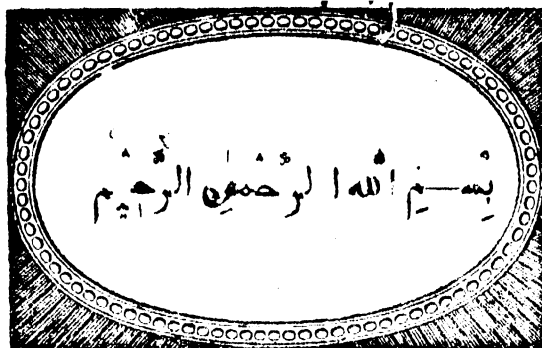 بِسْــمِ اللّٰهِ الرَّحْمٰنِ الرَّحِيْمِ